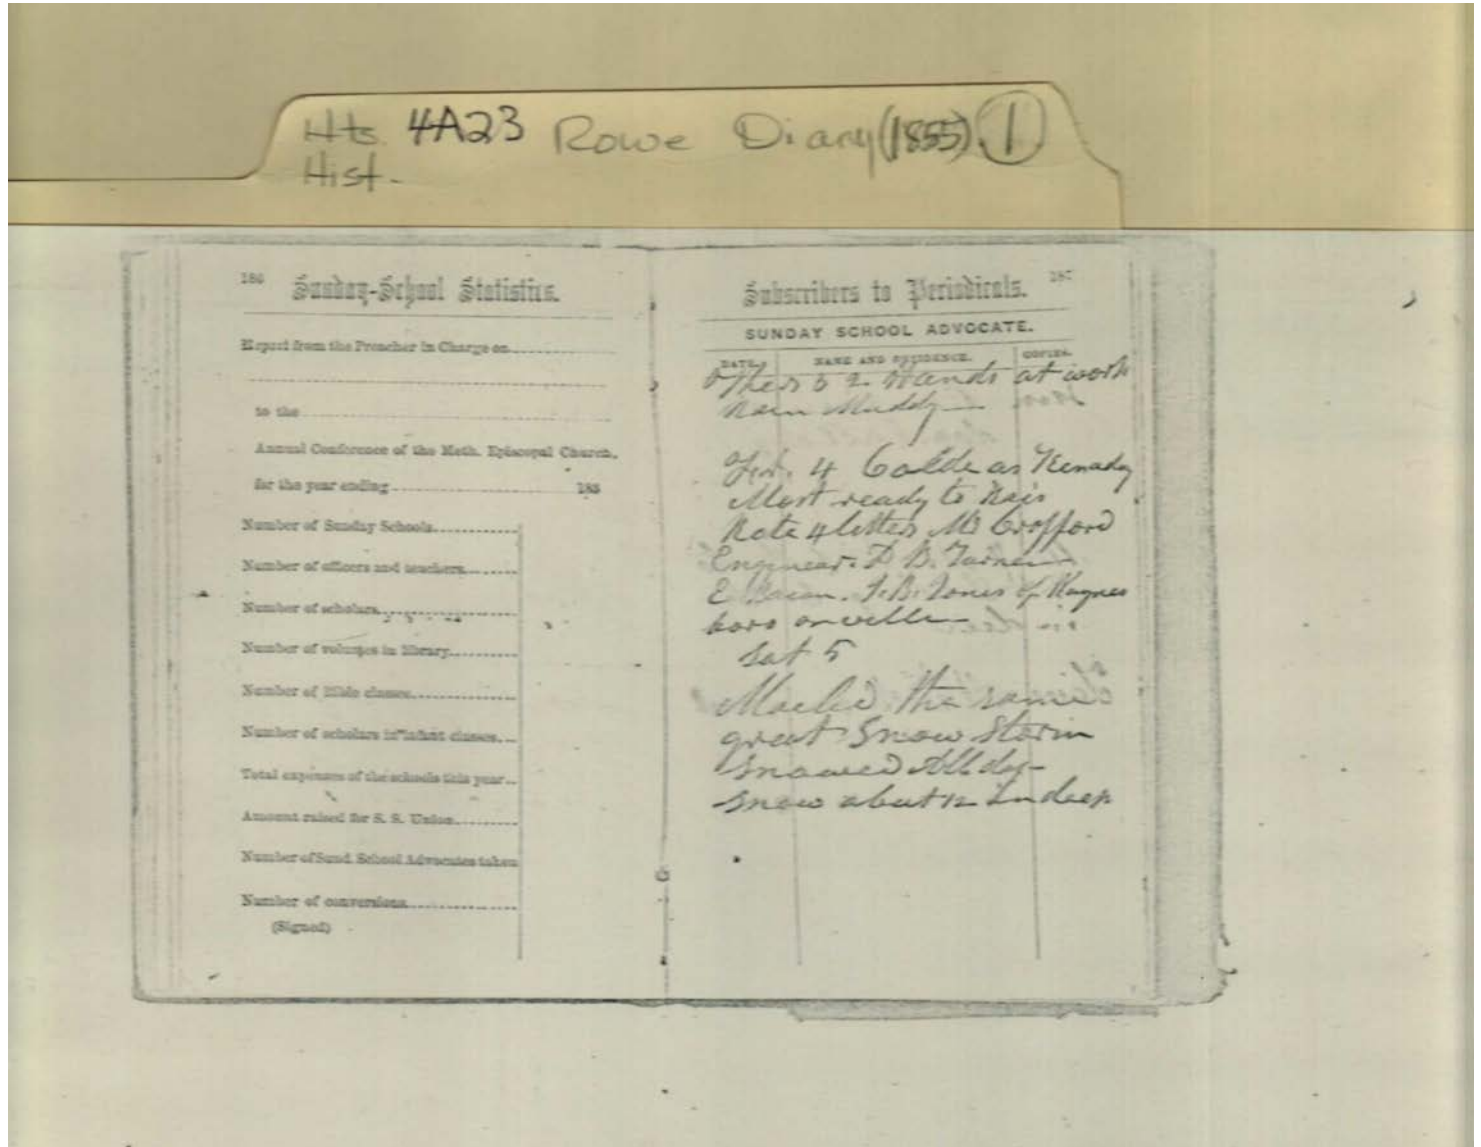 Hts 4A23 Rowe Diary (1855) 1
Hist.
186 Sunday-School Statistics.
Report from the Preacher in Charge on
to the
Annual Conference of the Meth. Episcopal Church,
for the year ending 185
Number of Sunday Schools
Number of officers and teachers
Number of scholars
Number of volumes in library
Number of Bible classes
Number of scholars in infant classes
Total expenses of the schools this year
Amount raised for S. S. Union
Number of Sund. School Advocates taken
Number of conversions
(Signed)
Subscribers to Periodicals. 187
SUNDAY SCHOOL ADVOCATE.
DATE. NAME AND RESIDENCE. COPIES.
2 Hands at work
Rain Muddy
4 Colde as
Most ready to
Rote 4 letters Mr Crofford
Engineer. D B. Turner
E Bacon. J. B. Jones of Waynes
boro or ville
Sat 5
the same
great Snow Storm
Snowed All day
Snow about 12 In deep